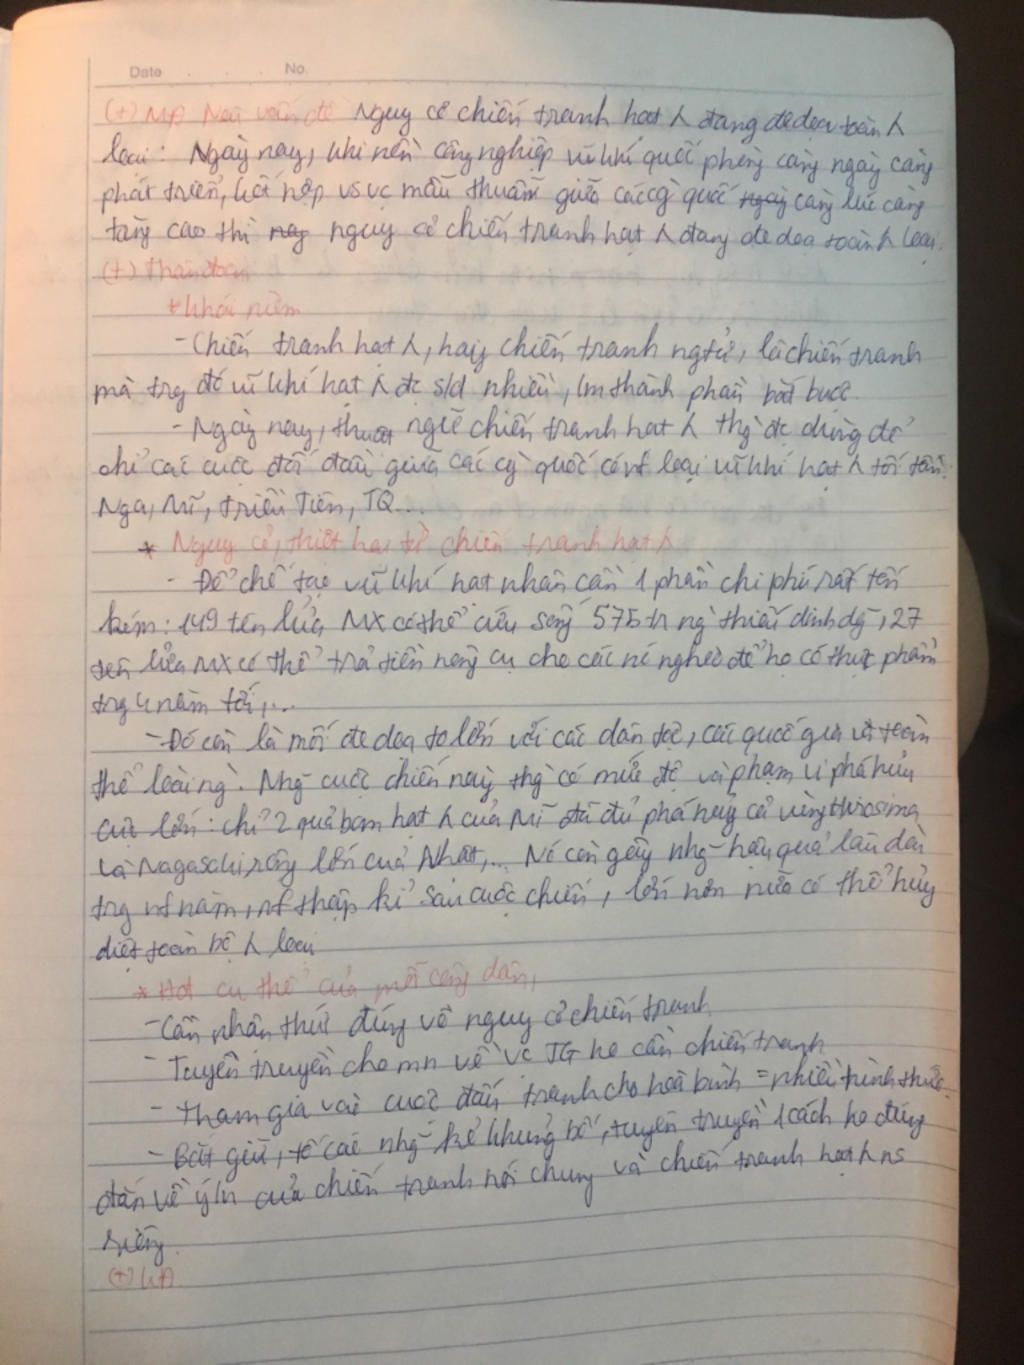 Date . . . No.
(+) MĐ Nêu vấn đề Nguy cơ chiến tranh hạt λ đang đe dọa toàn λ
loại: Ngày nay, khi nền công nghiệp vũ khí quốc phòng càng ngày càng
phát triển, kết hợp vs vc mâu thuẫn giữa các cg quốc ngày càng lúc càng
tăng cao thì nay nguy cơ chiến tranh hạt λ đang đe dọa toàn λ loại.
(+) Thân đoạn
+ khái niệm
- Chiến tranh hạt λ, hay chiến tranh ng tử, là chiến tranh
mà trg đó vũ khí hạt λ đc s/d nhiều, lm thành phần bắt buộc.
- Ngày nay, thuật ngữ chiến tranh hạt λ thg` đc dùng để
chỉ các cuộc đối đầu giữa các cg quốc có nh loại vũ khí hạt λ tối tân:
Nga, Mĩ, Triều Tiên, TQ...
* Nguy cơ, thiệt hại từ chiến tranh hạt λ
- Để chế tạo vũ khí hạt nhân cần 1 phần chi phí rất tốn
kém: 149 tên lửa MX có thể cứu sống 575 tr ng` thiếu dinh dg~, 27
tên lửa MX có thể trả tiền nông cụ cho các nc nghèo để họ có thực phẩm
trg 4 năm tới,...
- Đó còn là mối đe dọa to lớn với các dân tộc, các quốc gia và toàn
thể loài ng`. Nhg~ cuộc chiến này thg` có mức độ và phạm vi phá hủy
cực lớn: chỉ 2 quả bom hạt λ của Mĩ đã đủ phá hủy cả vùng Hirosima
và Nagaschi rộng lớn của Nhật,... Nó còn gây nhg~ hậu quả lâu dài
trg nh năm, nh thập kỉ sau cuộc chiến, lớn hơn nữa có thể hủy
diệt toàn bộ λ loại
* Hđ cụ thể của mỗi công dân,
- Cần nhận thức đúng về nguy cơ chiến tranh
- Tuyên truyền cho mn về vc TG ko cần chiến tranh
- Tham gia vào cuộc đấu tranh cho hoà bình = nhiều hình thức
- Bắt giữ, tố cáo nhg~ kẻ khủng bố, tuyên truyền 1 cách ko đúng
đắn về ý/n của chiến tranh nói chung và chiến tranh hạt λ ns
riêng.
(+) KĐ